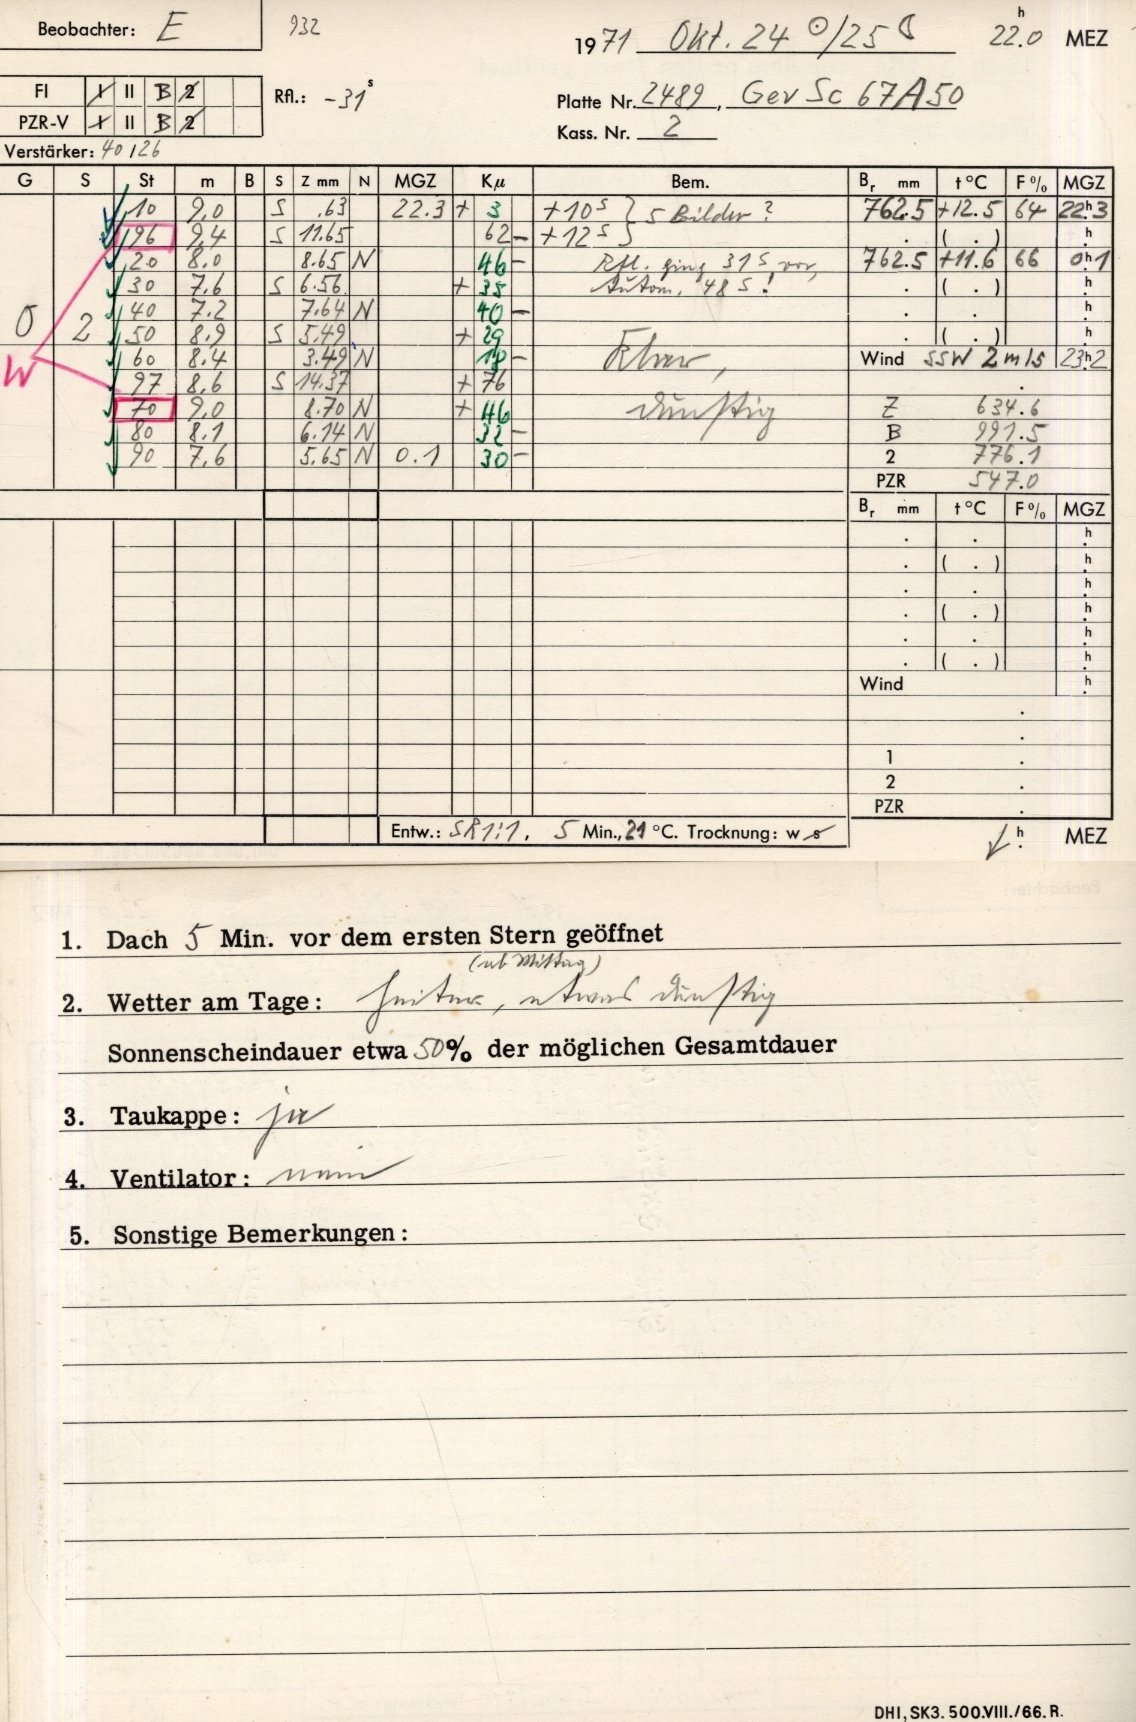 Beobachter: E 932 1971 Okt. 24 ☉/25 ☾ 22.0 h MEZ
FI I II B 2 Rfl.: -31 s Platte Nr. 2489, Gev Sc 67A50
PZR-V I II B 2 Kass. Nr. 2
Verstärker: 40/26
G S St m B S Z mm N MGZ Kµ Bem. Br mm t °C F % MGZ
10 9.0 S .63 22.3 + 3 +10 s } 5 Bilder? 762.5 +12.5 64 22 h 3
96 9.4 S 11.65 62 - +12 s } . ( . ) h
20 8.0 8.65 N 46 - Rfl. ging 31 s vor, 762.5 +11.6 66 0 h 1
30 7.6 S 6.56 + 35 Autom. 48 s! . ( . ) h
40 7.2 7.64 N 40 - . . h
O 2 50 8.9 S 5.49 + 29 . ( . ) h
W 60 8.4 3.49 N 18 - Klar, Wind SSW 2 m/s 23 h 2
97 8.6 S 14.37 + 76 .
70 9.0 8.70 N + 46 dunstig Z 634.6
80 8.1 6.14 N 32 - B 991.5
90 7.6 5.65 N 0.1 30 - 2 776.1
PZR 547.0
Br mm t °C F % MGZ
. . h
. ( . ) h
. . h
. ( . ) h
. . h
. ( . ) h
Wind h
.
.
1 .
2 .
PZR .
Entw.: SR 1:1. 5 Min., 21 °C. Trocknung: w s h MEZ
1. Dach 5 Min. vor dem ersten Stern geöffnet
(ab Mittag)
2. Wetter am Tage: heiter, etwas dunstig
Sonnenscheindauer etwa 50% der möglichen Gesamtdauer
3. Taukappe: ja
4. Ventilator: nein
5. Sonstige Bemerkungen:
DHI, SK3. 500.VIII./66. R.